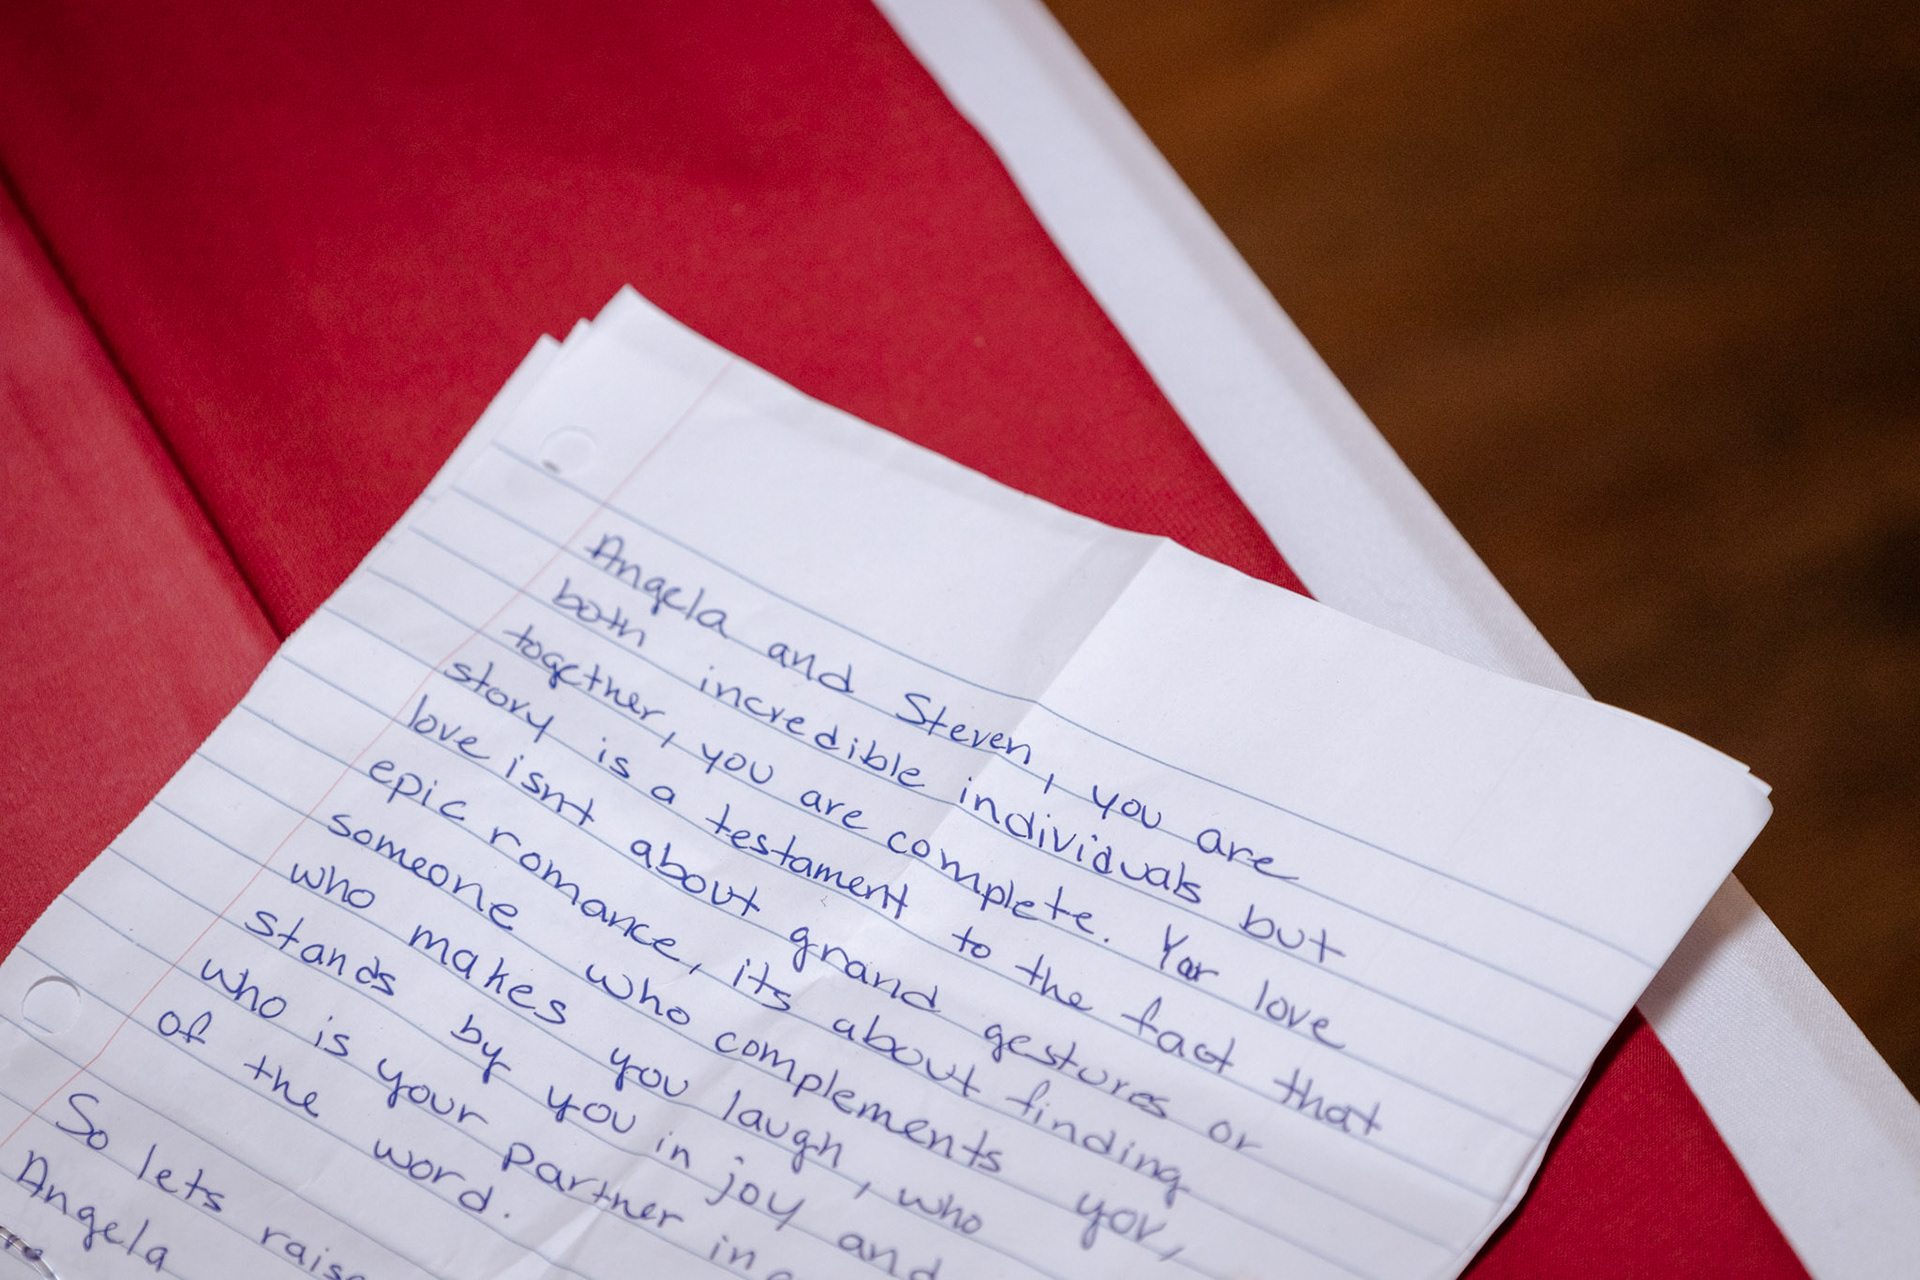 Angela and Steven, you are
both incredible individuals but
together, you are complete. Yor love
story is a testament to the fact that
love isnt about grand gestures or
epic romance, its about finding
someone who complements you,
who makes you laugh, who
stands by you in joy and
who is your partner in
of the word.
So lets raise
Angela